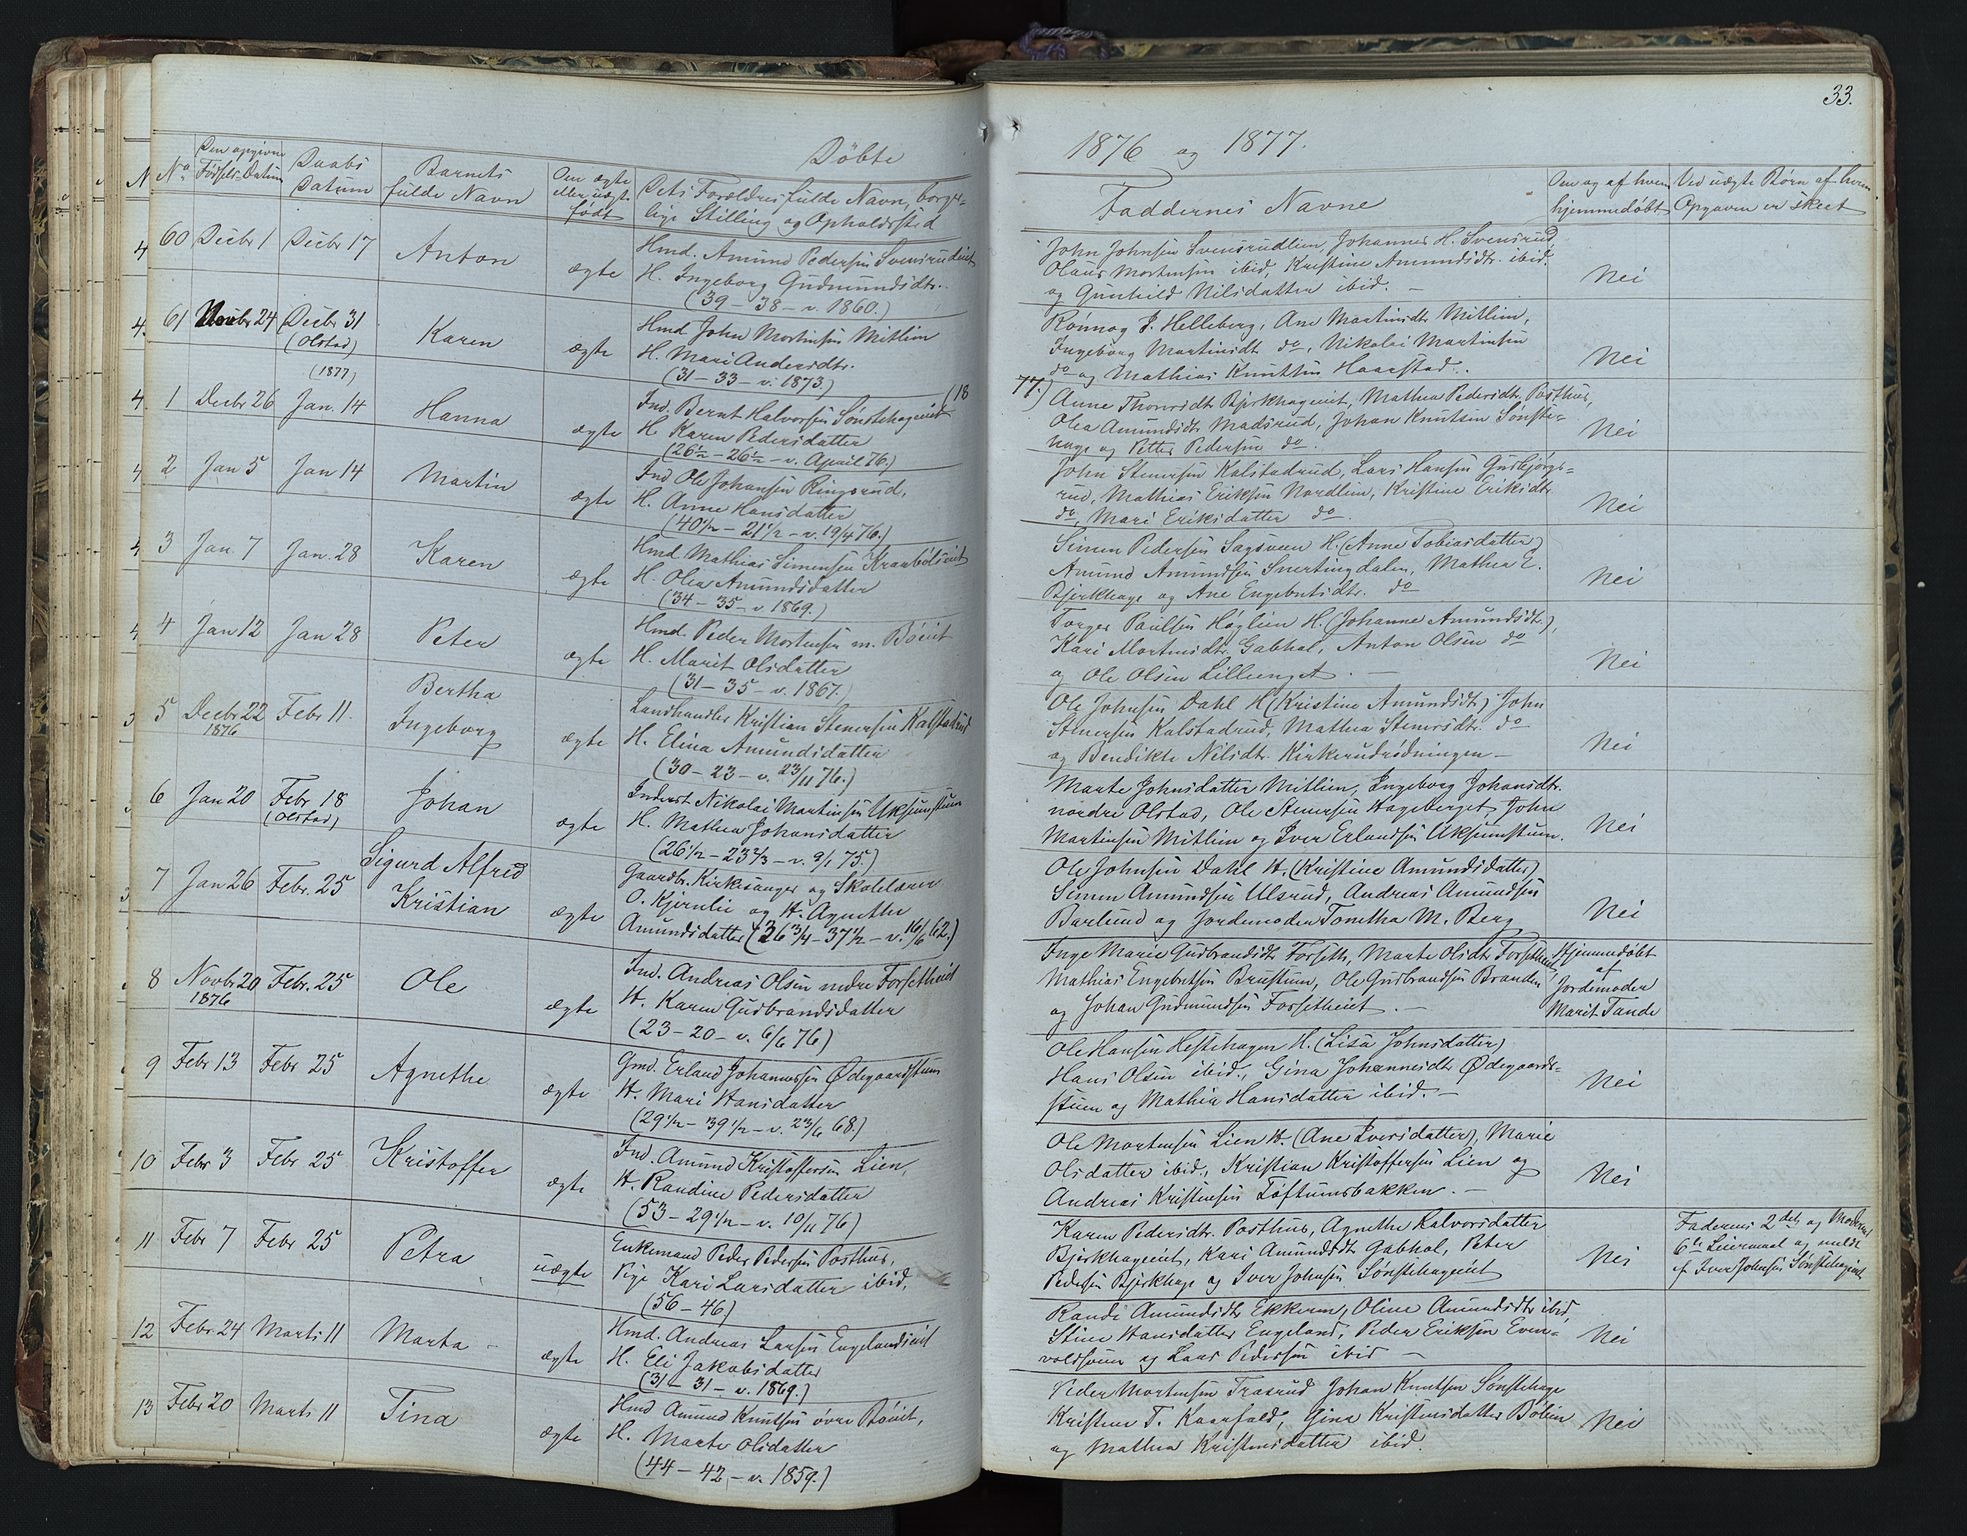 33.
Døbte
1876 og 1877.
No
Den opgivne
Fødsels-Datum
Daabs
Datum
Barnets
fulde Navn
Om ægte
eller uægte
født
Dets Forældres fulde Navn, borger-
lige Stilling og Opholdssted
Faddernes Navne
Om og af hvem
hjemmedøbt
Ved uægte Børn af hvem
Opgaven er skeet
60 Decbr 1 Decbr 17 Anton ægte
Hmd. Amund Pedersen Svensrudeiet
H. Ingeborg Gudmundsdtr.
(39 – 38 – v. 1860.)
John Johnsen Svensrudlien, Johannes H. Svensrud,
Olaus Mortensen ibid, Kristine Amundsdtr. ibid.
og Gunhild Nilsdatter ibid. –
Nei
61 Novbr 24 Decbr 31
(Olstad)
Karen ægte
Hmd John Mortensen Mitlien
H. Mari Andersdtr.
(31 – 33 – v. 1873.)
Rønnog J. Helleberg, Ane Martinsdtr Mitlien,
Ingeborg Martinsdt do, Nikolai Martinsen
do og Mathias Knutsen Haarstad.
Nei
(1877)
1 Decbr 26 Jan. 14 Hanna ægte
(18
Ind. Bernt Halvorsen Sønstehageeiet
H. Karen Pedersdatter
(26½ – 26½ – v. April 76.)
77.) Anne Thorsdtr Bjerkhageeiet, Mathea Pedersdtr. Posthus,
Olea Amundsdtr Madsrud, Johan Knutsen Sønste-
hage og Petter Pedersen do.
Nei
2 Jan 5 Jan 14 Martin ægte
Ind Ole Johansen Ringsrud,
H. Anne Hansdatter
(40½ – 21½ – v. 19/4 76.)
John Stenersen Kalstadrud, Lars Hansen Gusbjørgs-
rud, Mathias Eriksen Nordlien, Kristine Eriksdtr.
do, Mari Eriksdatter do.
Nei
3 Jan. 7 Jan. 28 Karen ægte
Hmd. Mathias Simensen Kraabølseiet
H. Olea Amundsdatter
(34 – 35 – v 1869.)
Simen Pedersen Sagsveen H. (Anne Tobiasdatter)
Amund Amundsen Snertingdalen, Mathea E.
Bjerkhage og Ane Engebretsdtr. do
Nei
4 Jan 12 Jan 28 Peter ægte
Hmd. Peder Mortensen m. Bøeiet
H. Marit Olsdatter
(31 – 35 – v. 1867.)
Torger Paulsen Høglien H. (Johanne Amundsdt),
Kari Mortensdtr. Gabhol, Anton Olsen do
og Ole Olsen Lillienget. –
Nei
5 Decbr 22
1876
Febr 11. Bertha
Ingeborg
ægte
Landhandler Kristian Stenersen Kalstadrud
H. Elina Amundsdatter
(30 – 23 – v. 23/11 76.)
Ole Johnsen Dahl H (Kristine Amundsdt) John
Stenersen Kalstadrud, Mathea Stenersdtr. do
og Bendikte Nilsdtr. Kirkerudrødningen –
Nei
6 Jan 20 Febr 18
(Olstad)
Johan ægte
Inderst Nikolai Martinsen Uksumstuen
H. Mathea Johansdatter
(26½ – 23⅔ – v. 9/1 75.)
Marte Johnsdatter Mitlien, Ingeborg Johansdtr.
nordre Olstad, Ole Stenersen Hageberget, John
Martinsen Mitlien og Iver Erlandsen Uksumstuen.
Nei
7 Jan 26 Febr. 25 Sigurd Alfred
Kristian
ægte
Gaardbr. Kirkesanger og Skolelærer
O. Kjernlie og H. Agnethe
Amundsdatter (36¾ – 37½ – v. 16/6 62.)
Ole Johnsen Dahl H. (Kristine Amundsdatter)
Simen Amundsen Ulsrud, Andreas Amundsen
Barlund og Jordemoder Tonetha M. Berg
Nei
8 Novbr 20
1876
Febr. 25 Ole ægte
Ind. Andreas Olsen nedre Forsetheiet
H. Karen Gudbrandsdatter
(23 – 20 – v. 6/6 76)
Inge Marie Gudbrandsdt Forseth, Marte Olsdtr Forsetheiet,
Mathias Engebretsen Brustuen, Ole Gudbrandsen Branden
og Johan Gudmundsen Forsetheiet. –
Hjemmedøbt
af
Jordemoder
Marit Tande
9 Febr 13 Febr 25 Agnethe ægte
Gmd. Erland Johannessen Ødegaardstuen
H. Mari Hansdatter
(29½ – 39½ – v. 23/6 68.)
Ole Hansen Hestehagen H. (Lisa Johnsdatter)
Hans Olsen ibid., Gina Johannesdtr Ødegaards-
stuen og Mathia Hansdatter ibid. –
Nei
10 Febr 3 Febr 25 Kristoffer ægte
Ind. Amund Kristoffersen Lien,
H. Randine Pedersdatter
(53 – 29½ – v. 10/11 76)
Ole Mortensen Lien H. (Ane Iversdatter), Marie
Olsdatter ibid., Kristian Kristoffersen Lien og
Andreas Kristensen Toftumsbakken. –
Nei
11 Febr 7 Febr 25 Petra uægte
Enkemand Peder Pedersen Posthus,
Pige Kari Larsdatter ibid,
(56 – 46)
Karen Pedersdtr. Posthus, Agnethe Halvorsdatter
Bjerkhageeiet, Kari Amundsdt Gabhol, Peter
Pedersen Bjerkhage og Iver Johnsen Sønstehageeiet
Nei
Faderens 2det og Moderens
6te Leiermaal og meldt
af Iver Johnsen Sønstehageeiet
12 Febr 24 Marts 11 Marta – ægte
Hmd. Andreas Larsen Engelandseiet
H. Eli Jakobsdatter
(31 – 31 – v. 1869.)
Randi Amundsdtr Ekkeren, Oline Amundsdtr ibid,
Stine Hansdatter Engeland, Peder Eriksen Even-
voldsveen og Lars Pedersen ibid –
Nei
13 Febr 20 Marts 11 Tina ægte
Hmd Amund Knutsen øvre Bøeiet,
H. Marte Olsdatter
(44 – 42 – v. 1859.)
Peder Mortensen Trasrud Johan Knutsen Sønstehage
Kristen T. Kaarfald, Gina Kristensdatter Bølien
og Mathea Kristensdatter ibid.
Nei